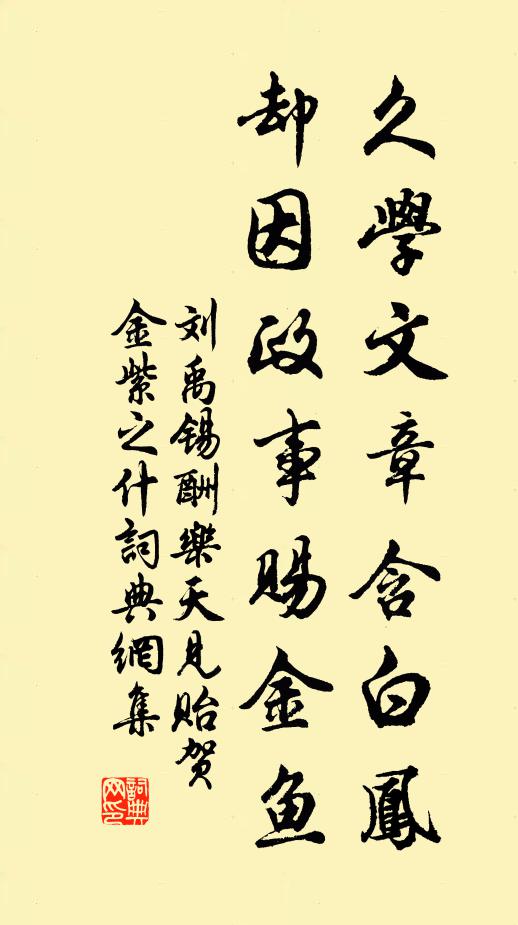 久學文章含白鳳
却因政事賜金魚
刘禹锡酬樂天見貽賀
金紫之什詞典網集
詞典网印